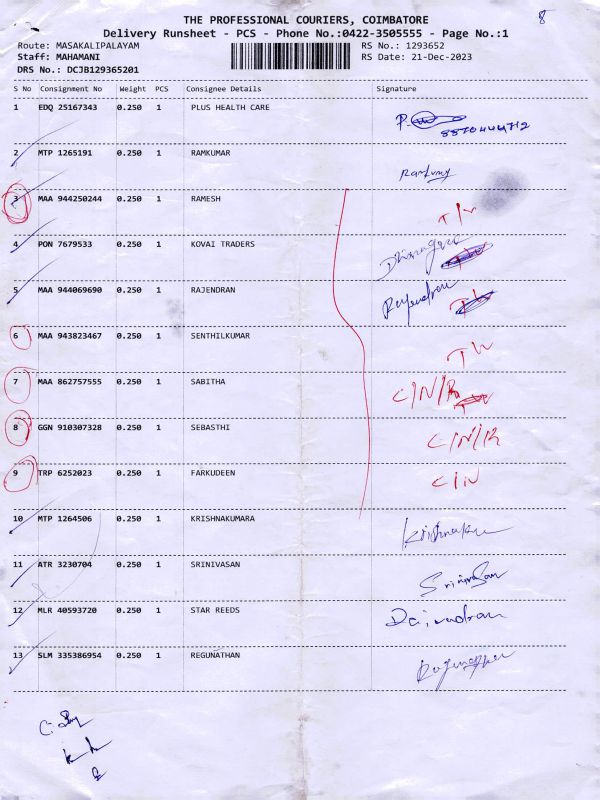 8
THE PROFESSIONAL COURIERS, COIMBATORE
Delivery Runsheet - PCS - Phone No.:0422-3505555 - Page No.:1
Route: MASAKALIPALAYAM RS No.: 1293652
Staff: MAHAMANI RS Date: 21-Dec-2023
DRS No.: DCJB129365201
S No Consignment No Weight PCS Consignee Details Signature
1 EDQ 25167343 0.250 1 PLUS HEALTH CARE
2 MTP 1265191 0.250 1 RAMKUMAR
3 MAA 944250244 0.250 1 RAMESH
4 PON 7679533 0.250 1 KOVAI TRADERS
5 MAA 944069690 0.250 1 RAJENDRAN Rajendran
6 MAA 943823467 0.250 1 SENTHILKUMAR
7 MAA 862757555 0.250 1 SABITHA C/N/R
8 GGN 910307328 0.250 1 SEBASTHI C/N/R
9 TRP 6252023 0.250 1 FARKUDEEN
10 MTP 1264506 0.250 1 KRISHNAKUMARA
11 ATR 3230704 0.250 1 SRINIVASAN Srinivasan
12 MLR 40593720 0.250 1 STAR REEDS
13 SLM 335386954 0.250 1 REGUNATHAN